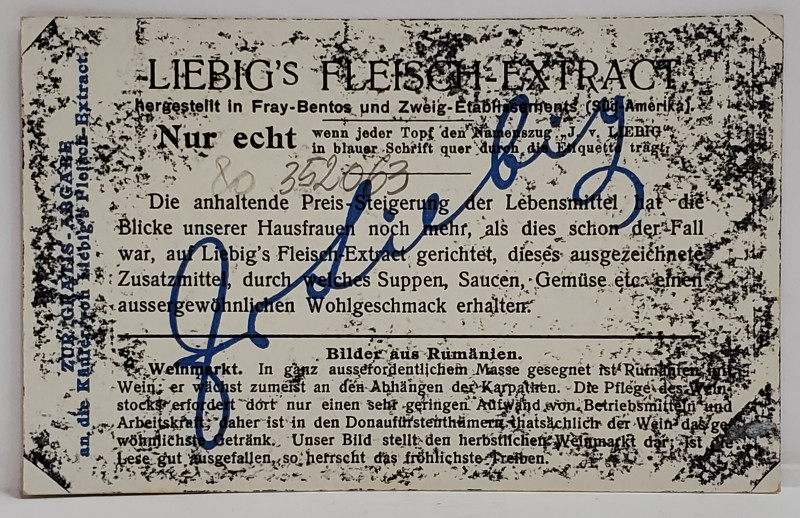 LIEBIG'S FLEISCH-EXTRACT
hergestellt in Fray-Bentos und Zweig-Etablissements (Süd-Amerika).
Nur echt wenn jeder Topf den Namenszug „J. v. LIEBIG"
in blauer Schrift quer durch die Etiquette trägt.
80 352063
Die anhaltende Preis-Steigerung der Lebensmittel hat die
Blicke unserer Hausfrauen noch mehr, als dies schon der Fall
war, auf Liebig's Fleisch-Extract gerichtet, dieses ausgezeichnete
Zusatzmittel, durch welches Suppen, Saucen, Gemüse etc. einen
aussergewöhnlichen Wohlgeschmack erhalten.
J v Liebig
Bilder aus Rumänien.
Weinmarkt. In ganz ausserordentlichem Masse gesegnet ist Rumänien mit
Wein; er wächst zumeist an den Abhängen der Karpathen. Die Pflege des Wein-
stocks erfordert dort nur einen sehr geringen Aufwand von Betriebsmitteln und
Arbeitskraft; daher ist in den Donaufürstenthümern thatsächlich der Wein das ge-
wöhnlichste Getränk. Unser Bild stellt den herbstlichen Weinmarkt dar. Ist die
Lese gut ausgefallen, so herrscht das fröhlichste Treiben.
ZUR GRATIS-ABGABE
an die Käufer von Liebig's Fleisch-Extract.